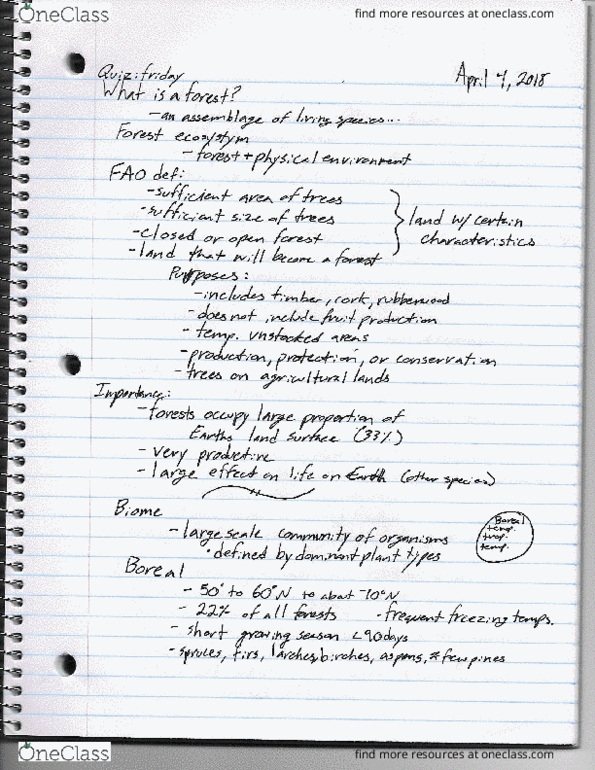 OneClass
find more resources at oneclass.com
Quiz: friday
April 4, 2018
What is a forest?
- an assemblage of living species...
Forest ecosystym
- forest + physical environment
FAO def:
- sufficient area of trees
- sufficient size of trees
- closed or open forest
- land that will become a forest
land w/ certain
characteristics
Purposes:
- includes timber, cork, rubberwood
- does not include fruit production
- temp. unstocked areas
- production, protection, or conservation
- trees on agricultural lands
Importance:
- forests occupy large proportion of
Earths land surface (33%)
- very productive
- large effect on life on Earth (other species)
Biome
- large scale community of organisms
• defined by dominant plant types
Boreal
temp.
trop.
temp.
Boreal
- 50° to 60°N to about 70°N
- 22% of all forests
- frequent freezing temps.
- short growing season <90 days
- spruces, firs, larches, birches, aspens, * few pines
OneClass
find more resources at oneclass.com